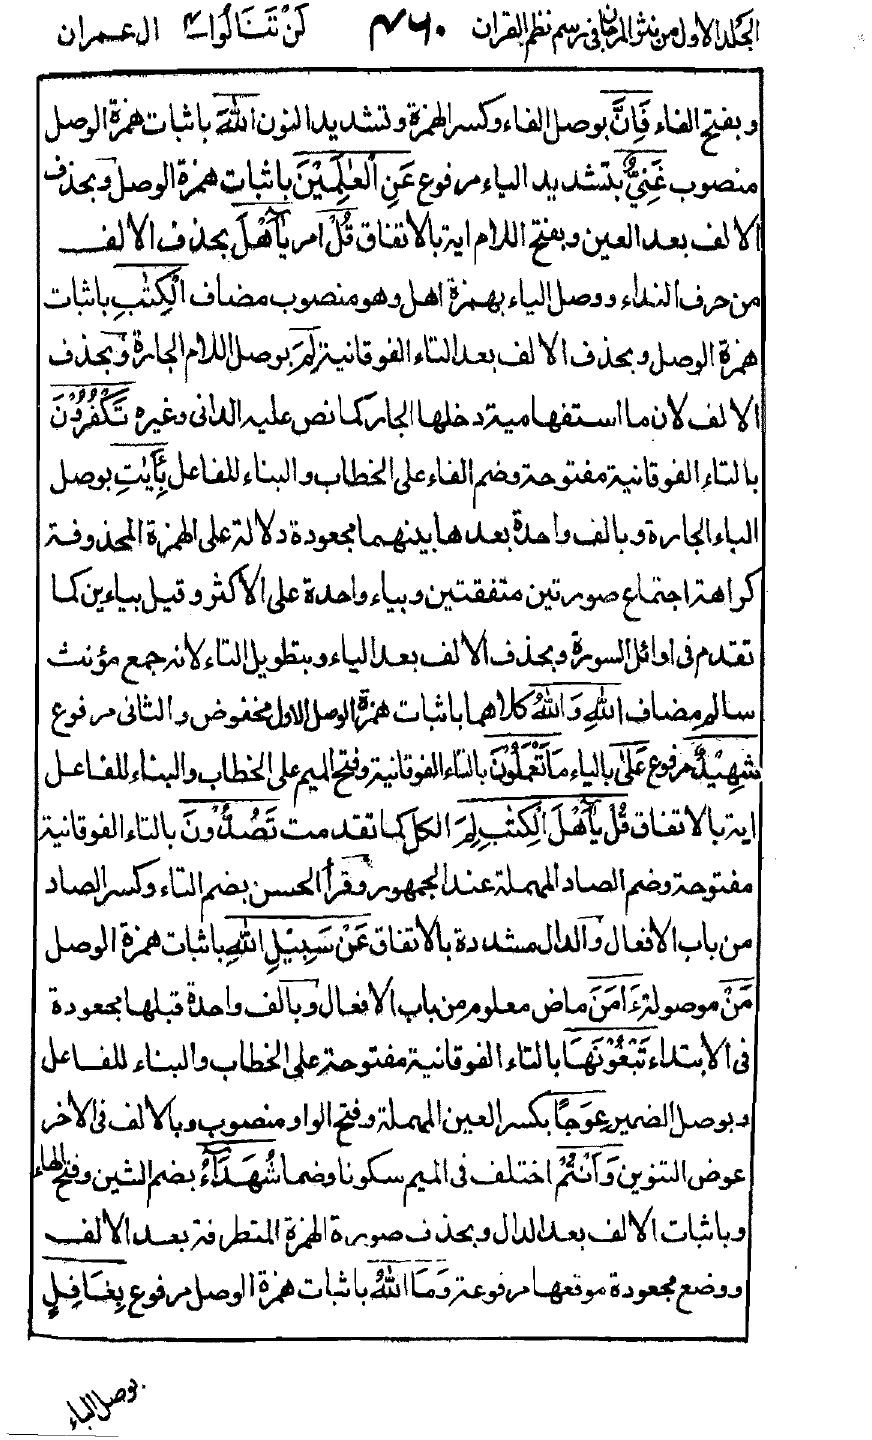 الجلد الاول من نثر المرجان في رسم نظم القران ٤٦٠ لَنْ تَنَالُوا ٤ ال عمران
وبفتح الفاء فَاِنَّ بوصل الفاء وكسر الهمزة وتشديد النون اللّٰهَ باثبات همزة الوصل
منصوب غَنِيٌّ بتشديد الياء مرفوع عَنِ الْعٰلَمِيْنَ باثبات همزة الوصل وبحذف
الالف بعد العين وبفتح اللام اية بالاتفاق قُلْ امر يٰٓاَهْلَ بحذف الالف
من حرف النداء ووصل الياء بهمزة اهل وهو منصوب مضاف الْكِتٰبِ باثبات
همزة الوصل وبحذف الالف بعد التاء الفوقانية لِمَ بوصل اللام الجارة وبحذف
الالف لان ما استفهامية دخلها الجار كما نص عليه الداني وغيره تَكْفُرُوْنَ
بالتاء الفوقانية مفتوحة وضم الفاء على الخطاب والبناء للفاعل بِاٰيٰتِ بوصل
الباء الجارة وبالف واحدة بعدها بينهما مجعودة دلالة على الهمزة المحذوفة
كراهة اجتماع صورتين متفقتين وبياء واحدة على الاكثر وقيل بياءين كما
تقدم في اوائل السورة وبحذف الالف بعد الياء وبتطويل التاء لانه جمع مؤنث
سالم مضاف اللّٰهِ وَاللّٰهُ كلاهما باثبات همزة الوصل الاول مخفوض والثاني مرفوع
شَهِيْدٌ مرفوع عَلٰى بالياء مَا تَعْمَلُوْنَ بالتاء الفوقانية وفتح الميم على الخطاب والبناء للفاعل
اية بالاتفاق قُلْ يٰٓاَهْلَ الْكِتٰبِ لِمَ الكل كما تقدمت تَصُدُّوْنَ بالتاء الفوقانية
مفتوحة وضم الصاد المهملة عند الجمهور وقرأ الحسن بضم التاء وكسر الصاد
من باب الافعال والدال مشددة بالاتفاق عَنْ سَبِيْلِ اللّٰهِ باثبات همزة الوصل
مَنْ موصولة ءَامَنَ ماض معلوم من باب الافعال وبالف واحدة قبلها مجعودة
في الابتداء تَبْغُوْنَهَا بالتاء الفوقانية مفتوحة على الخطاب والبناء للفاعل
وبوصل الضمير عِوَجًا بكسر العين المهملة وفتح الواو منصوب وبالالف في الاخر
عوض التنوين وَاَنْتُمْ اختلف في الميم سكونا وضما شُهَدَآءُ بضم الشين وفتح الهاء
وباثبات الالف بعد الدال وبحذف صورة الهمزة المتطرفة بعد الالف
ووضع مجعودة موقعها مرفوعة وَمَا اللّٰهُ باثبات همزة الوصل مرفوع بِغَافِلٍ
بوصل الباء